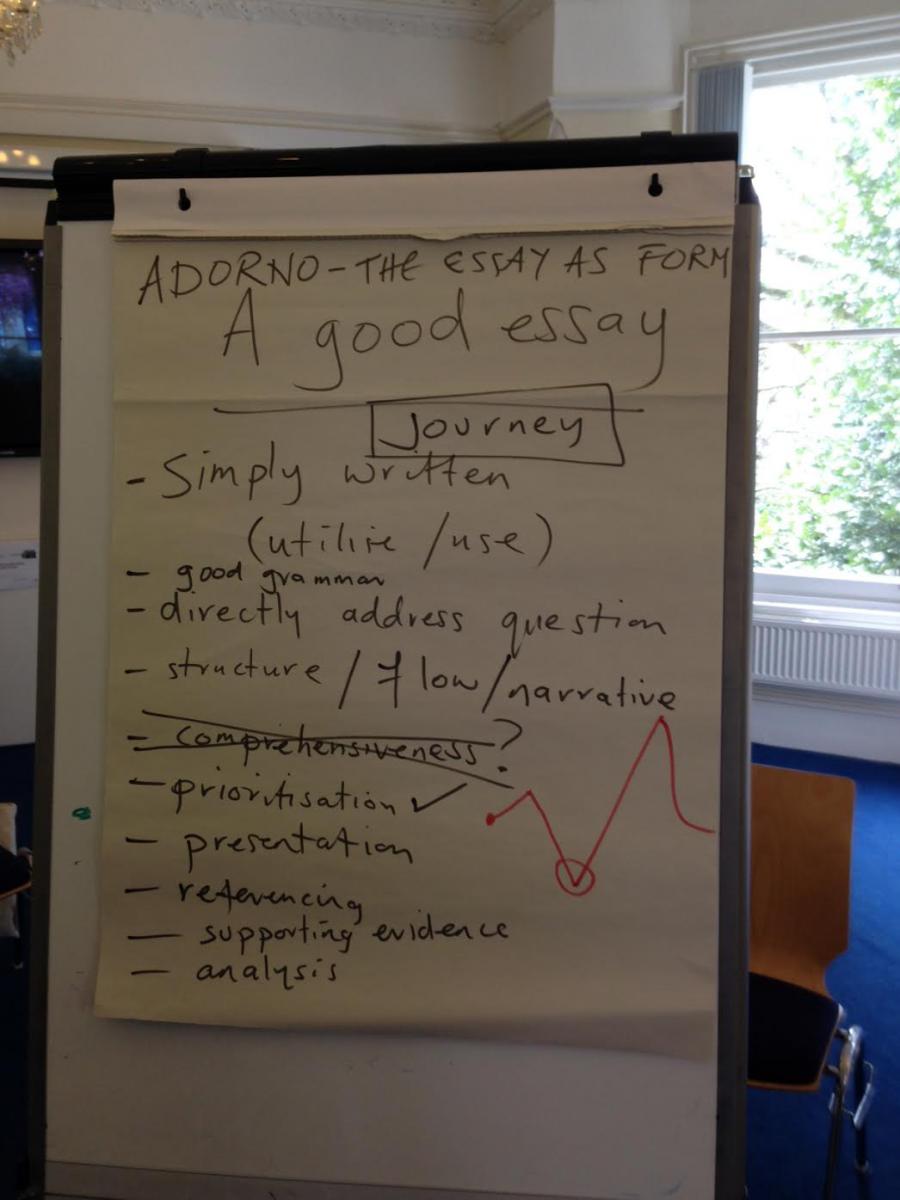 ADORNO - THE ESSAY AS FORM
A good essay
Journey
- Simply written
(utilise / use)
- good grammar
- directly address question
- structure / flow / narrative
- comprehensiveness ?
- prioritisation ✓
- presentation
- referencing
- supporting evidence
- analysis